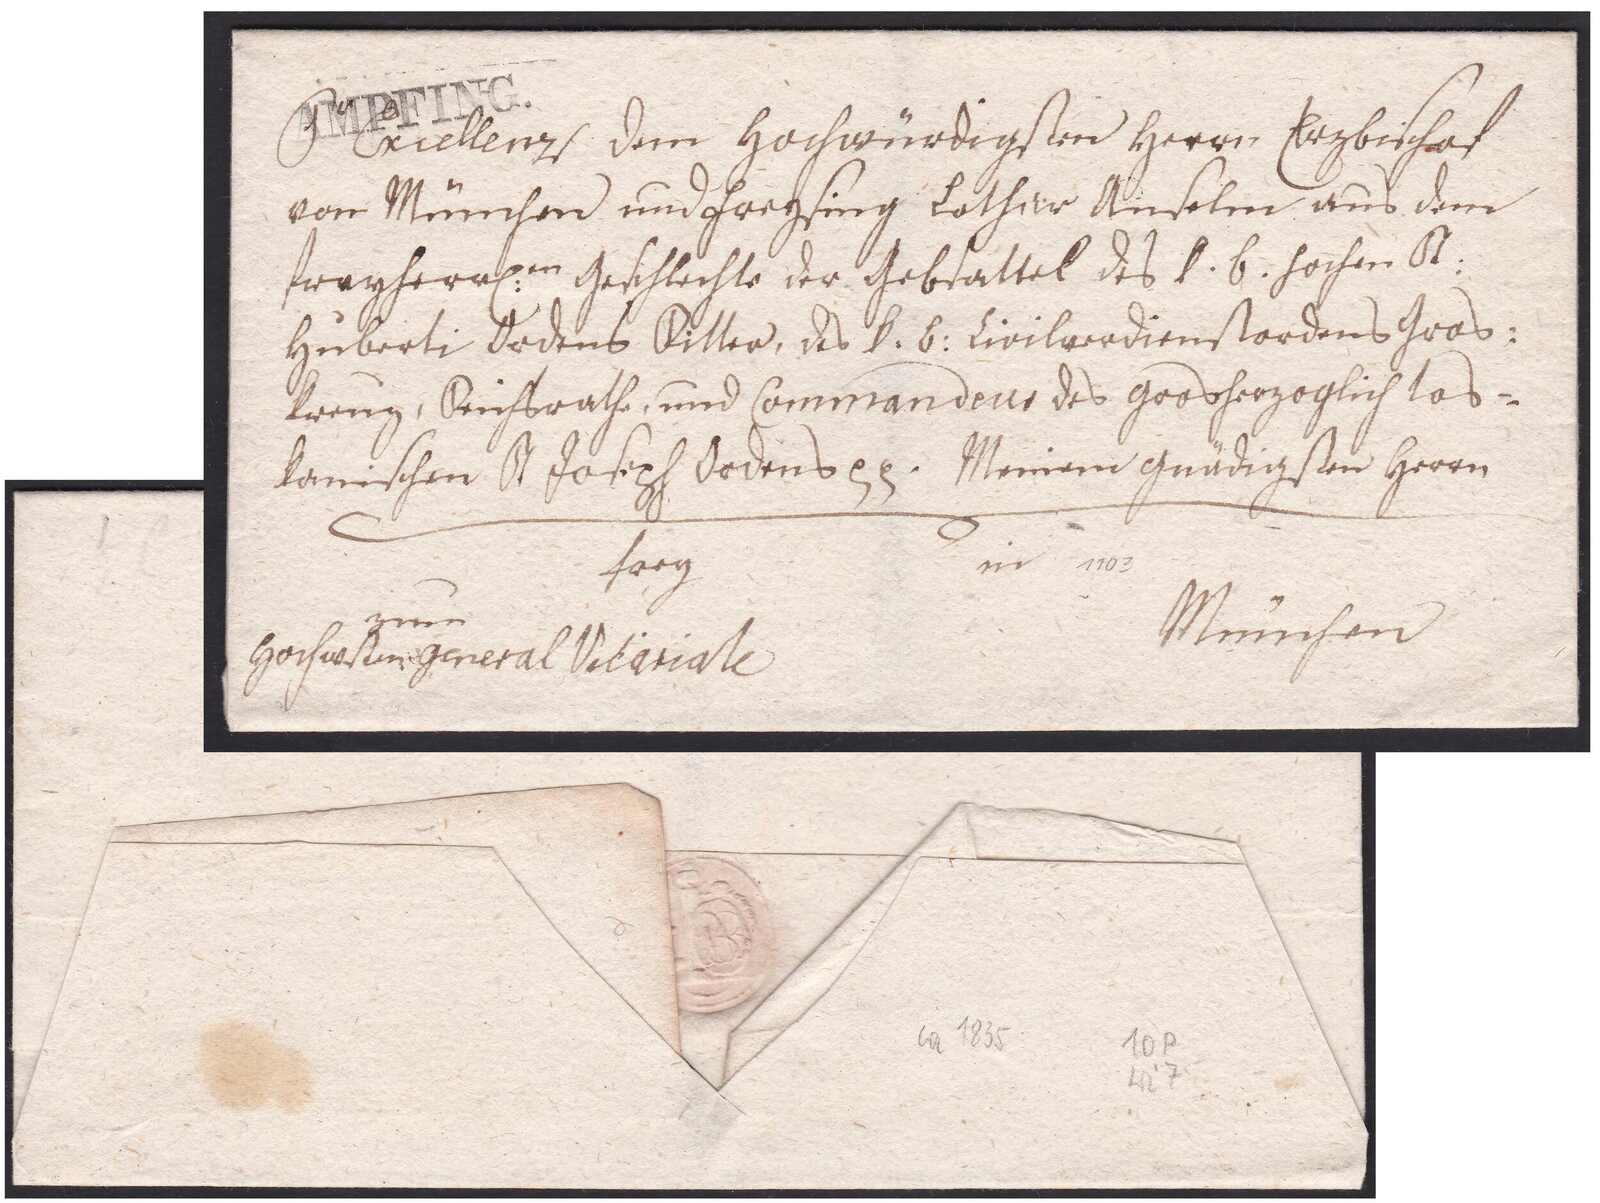 AMPFING.
Sr Excellenz dem Hochwürdigsten Herrn Erzbischof
von München und Freysing Lothar Anselm aus dem
freyherrl:en Geschlechte der Gebsattel des k. b. hohen St:
Huberti Ordens Ritter, des k. b: Civilverdienstordens Gros=
kreuz, Reichsrathe, und Commandeur des grosherzoglich tos=
kanischen St Joseph Ordens pp. Meinem gnädigsten Herrn
frey in 1103
München
zum
general Vicariate
ca 1835
10 P
Wi 7